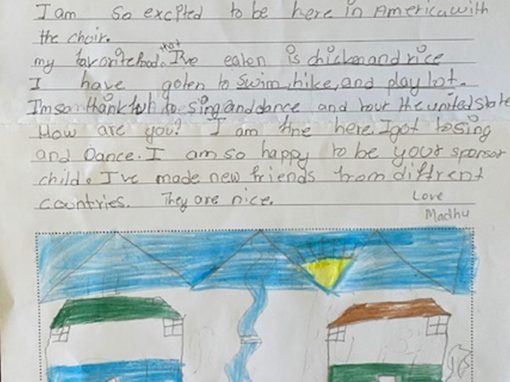 I am so excpted to be here in America with
the choir.
my favorite food that I've eaten is chicken and rice
I have goten to swim, hike, and play lot.
I'm so thankfuh to sing and dance and tour the united state
How are you? I am fine here. I got to sing
and Dance. I am so happy to be your sponsor
child. I've made new friends from diffrent
countries. They are nice.
Love
Madhu